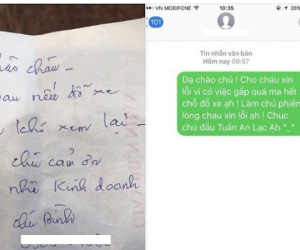 ào cháu -
au nếu đỗ xe
khó xem lại -
chú cảm ơn
nhà Kinh doanh
chú Bình
VN MOBIFONE
10:35
101
Tin nhắn văn bản
Hôm nay 09:57
Dạ chào chú ! Cho cháu xin
lỗi vì có việc gấp quá ma hết
chỗ đỗ xe ạh ! Làm chú phiền
lòng chau xin lỗi ạh ! Chuc
chú đấu Tuần An Lạc Ah ^_^